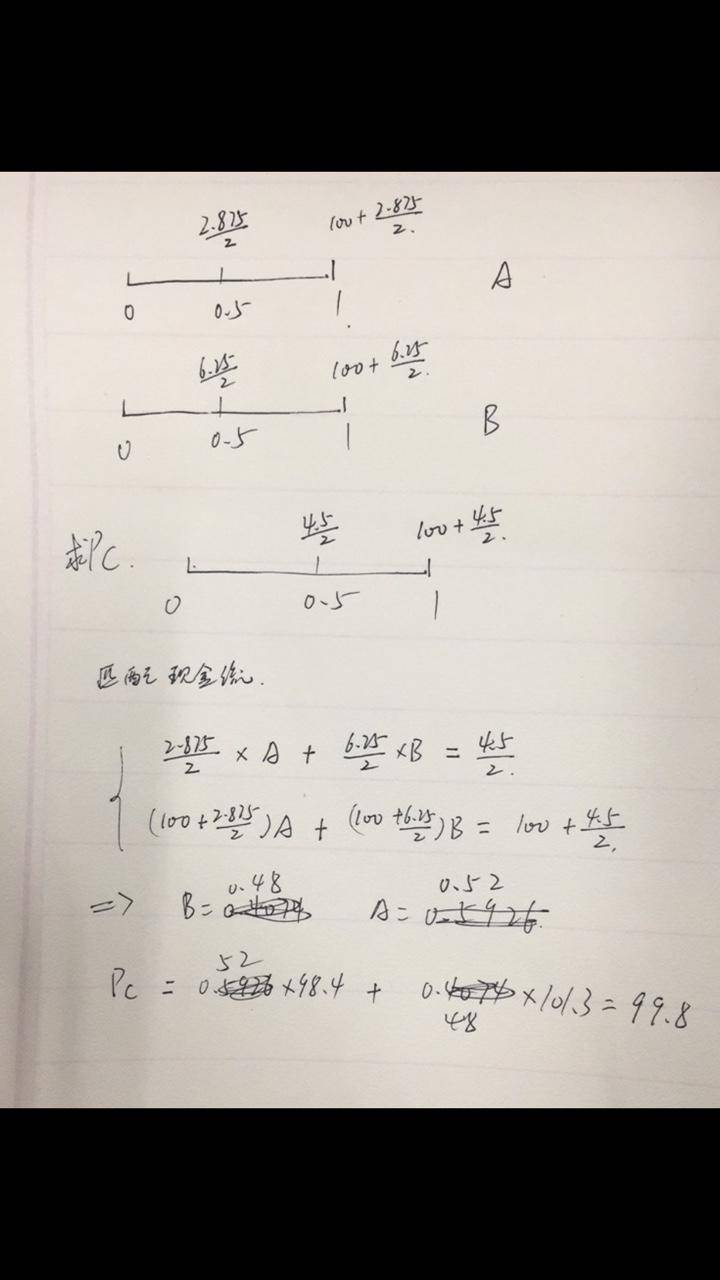 2.875/2 100+2.875/2.
0 0.5 1. A
6.25/2 100+6.25/2.
0 0.5 1 B
求PC. 4.5/2 100+4.5/2.
0 0.5 1
匹配 现金流.
2.875/2 × A + 6.25/2 × B = 4.5/2.
(100+2.875/2)A + (100+6.25/2)B = 100+4.5/2.
=> B = 0.48 A = 0.52
Pc = 0.52 ×98.4 + 0.48 ×101.3 = 99.8